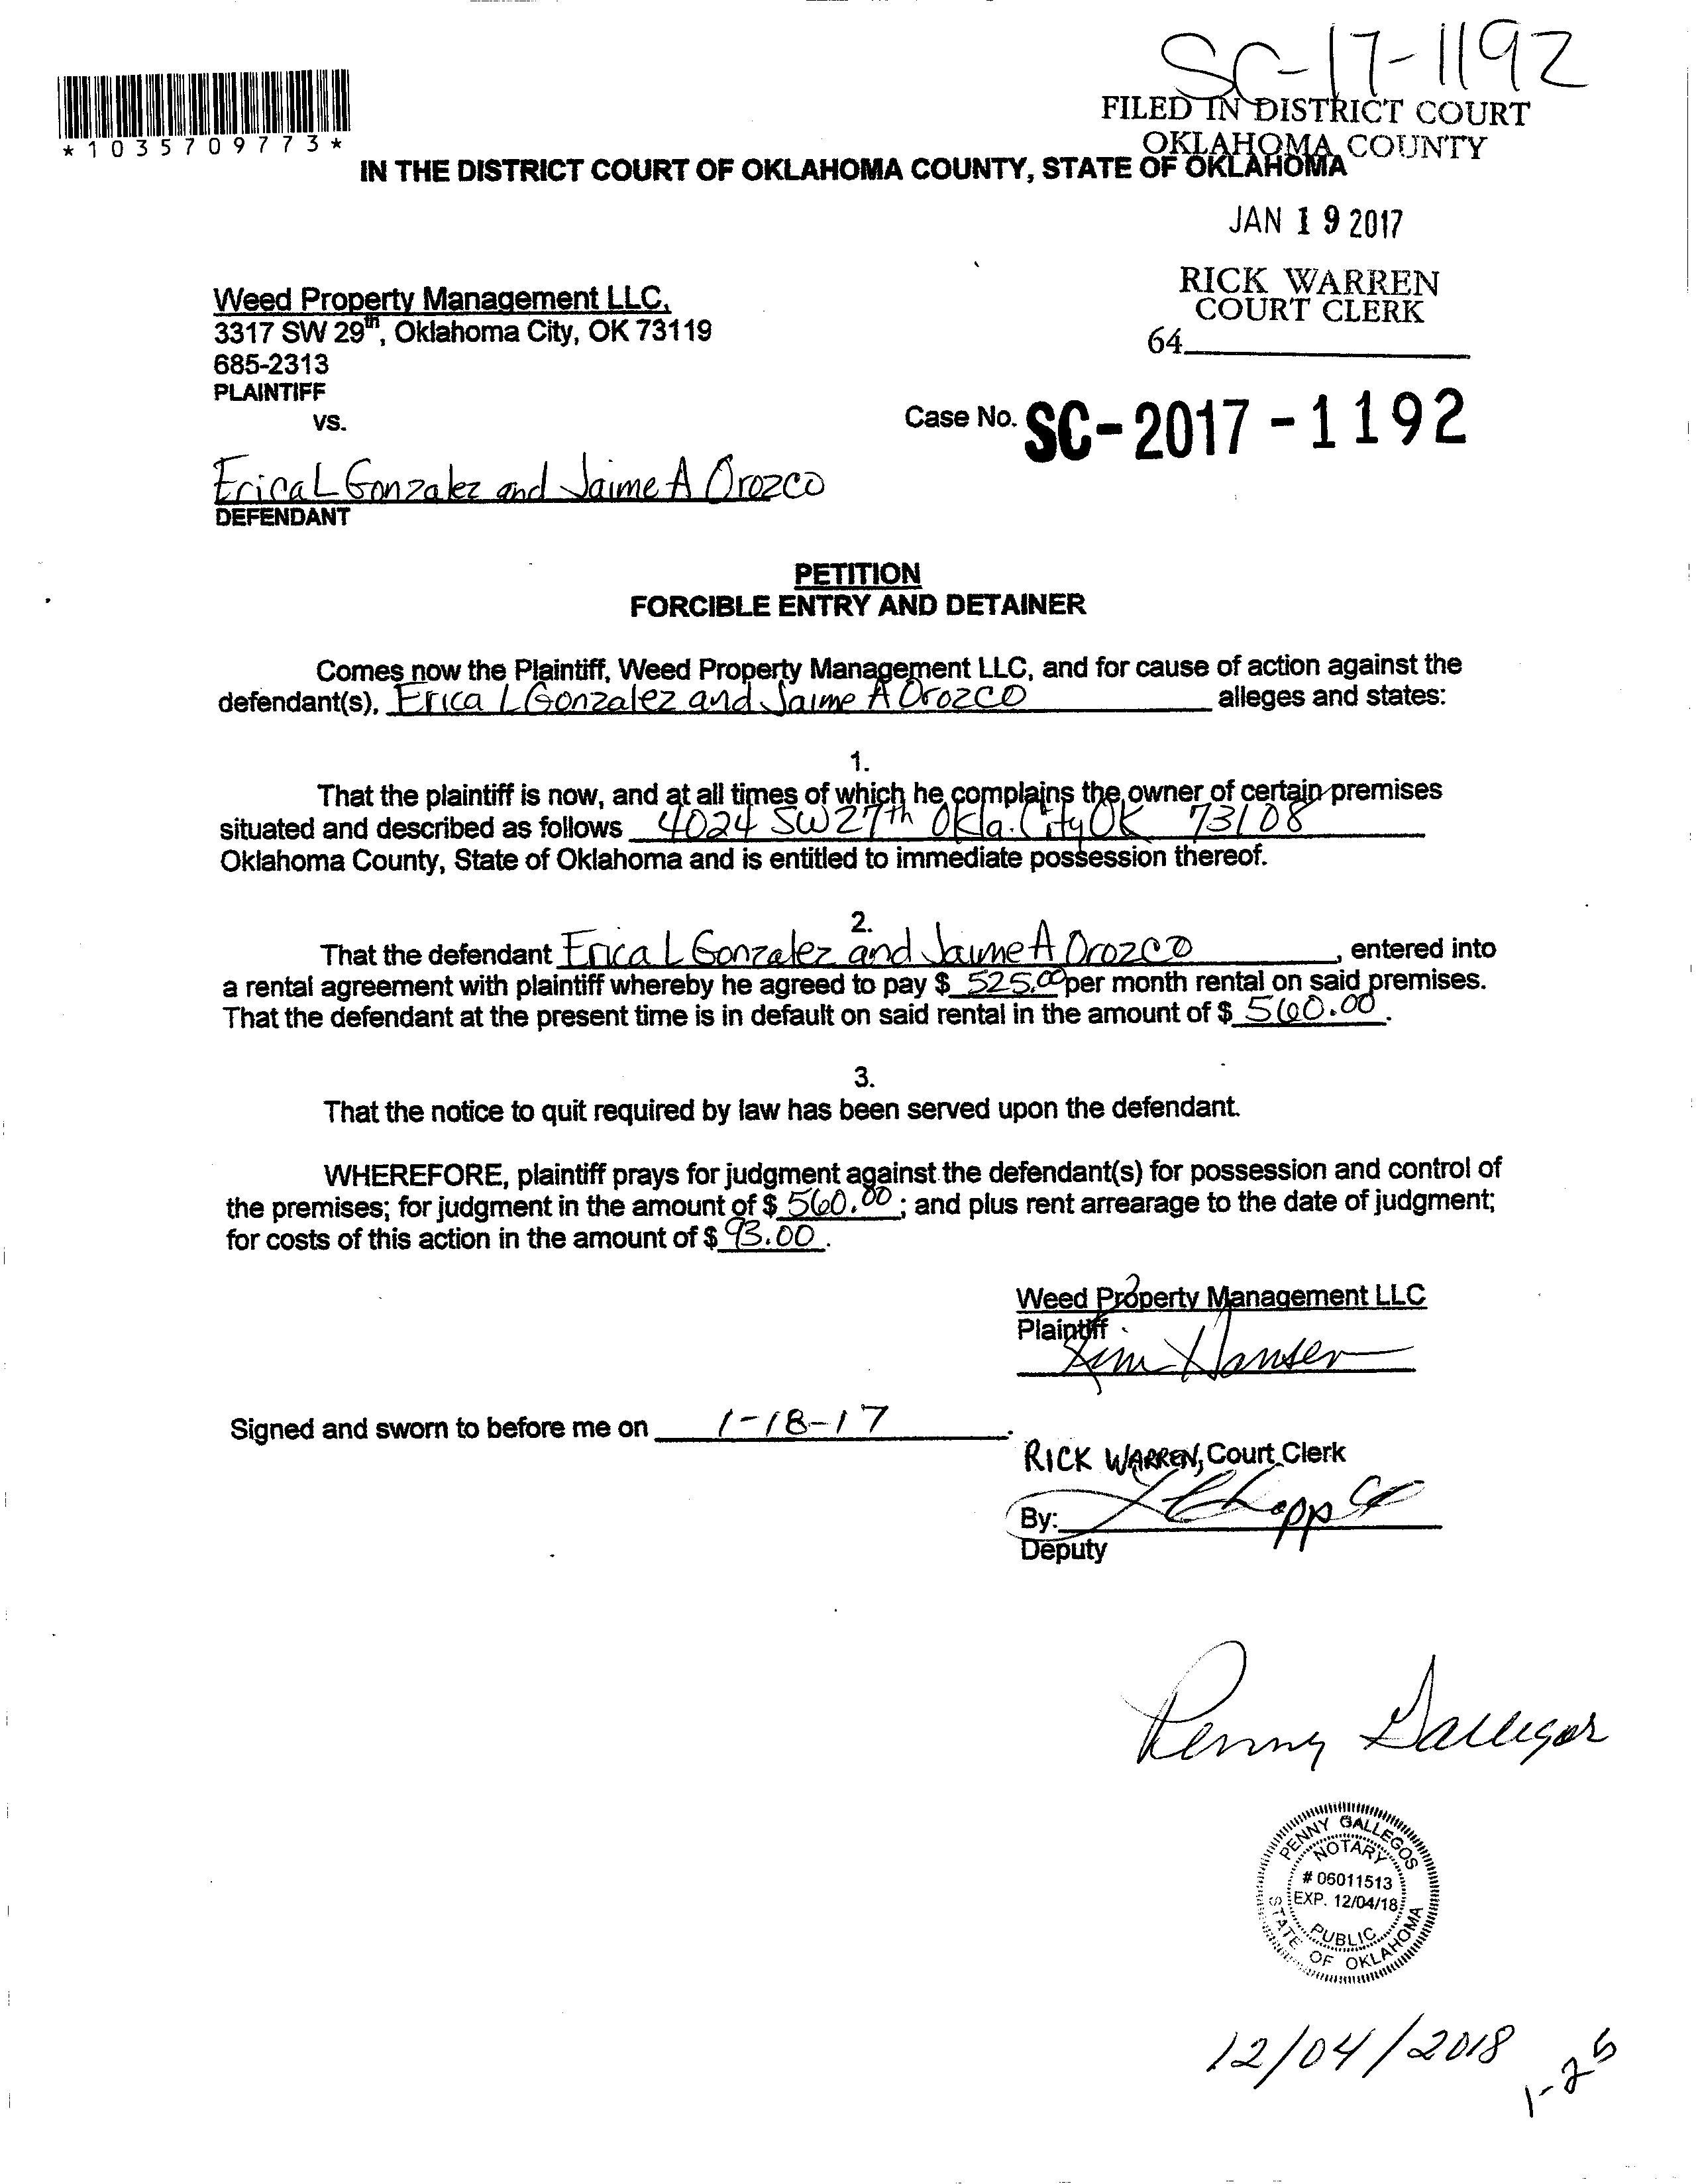 SC-17-1192
*1035709773*
FILED IN DISTRICT COURT
OKLAHOMA COUNTY
IN THE DISTRICT COURT OF OKLAHOMA COUNTY, STATE OF OKLAHOMA
JAN 19 2017
RICK WARREN
COURT CLERK
64
Weed Property Management LLC,
3317 SW 29th, Oklahoma City, OK 73119
685-2313
PLAINTIFF
vs.
Case No. SC-2017-1192
Erica L Gonzalez and Jaime A Orozco
DEFENDANT
PETITION
FORCIBLE ENTRY AND DETAINER
Comes now the Plaintiff, Weed Property Management LLC, and for cause of action against the
defendant(s), Erica L Gonzalez and Jaime A Orozco alleges and states:
1.
That the plaintiff is now, and at all times of which he complains the owner of certain premises
situated and described as follows 4024 SW 27th Okla. City OK 73108
Oklahoma County, State of Oklahoma and is entitled to immediate possession thereof.
2.
That the defendant Erica L Gonzalez and Jaime A Orozco, entered into
a rental agreement with plaintiff whereby he agreed to pay $ 525.00 per month rental on said premises.
That the defendant at the present time is in default on said rental in the amount of $ 560.00.
3.
That the notice to quit required by law has been served upon the defendant.
WHEREFORE, plaintiff prays for judgment against the defendant(s) for possession and control of
the premises; for judgment in the amount of $ 560.00; and plus rent arrearage to the date of judgment;
for costs of this action in the amount of $ 93.00.
Weed Property Management LLC
Plaintiff
Kim Hansen
Signed and sworn to before me on 1-18-17.
RICK WARREN, Court Clerk
By:
Deputy
Penny Gallegos
PENNY GALLEGOS
NOTARY
# 06011513
EXP. 12/04/18
PUBLIC
STATE OF OKLAHOMA
12/04/2018
1-25